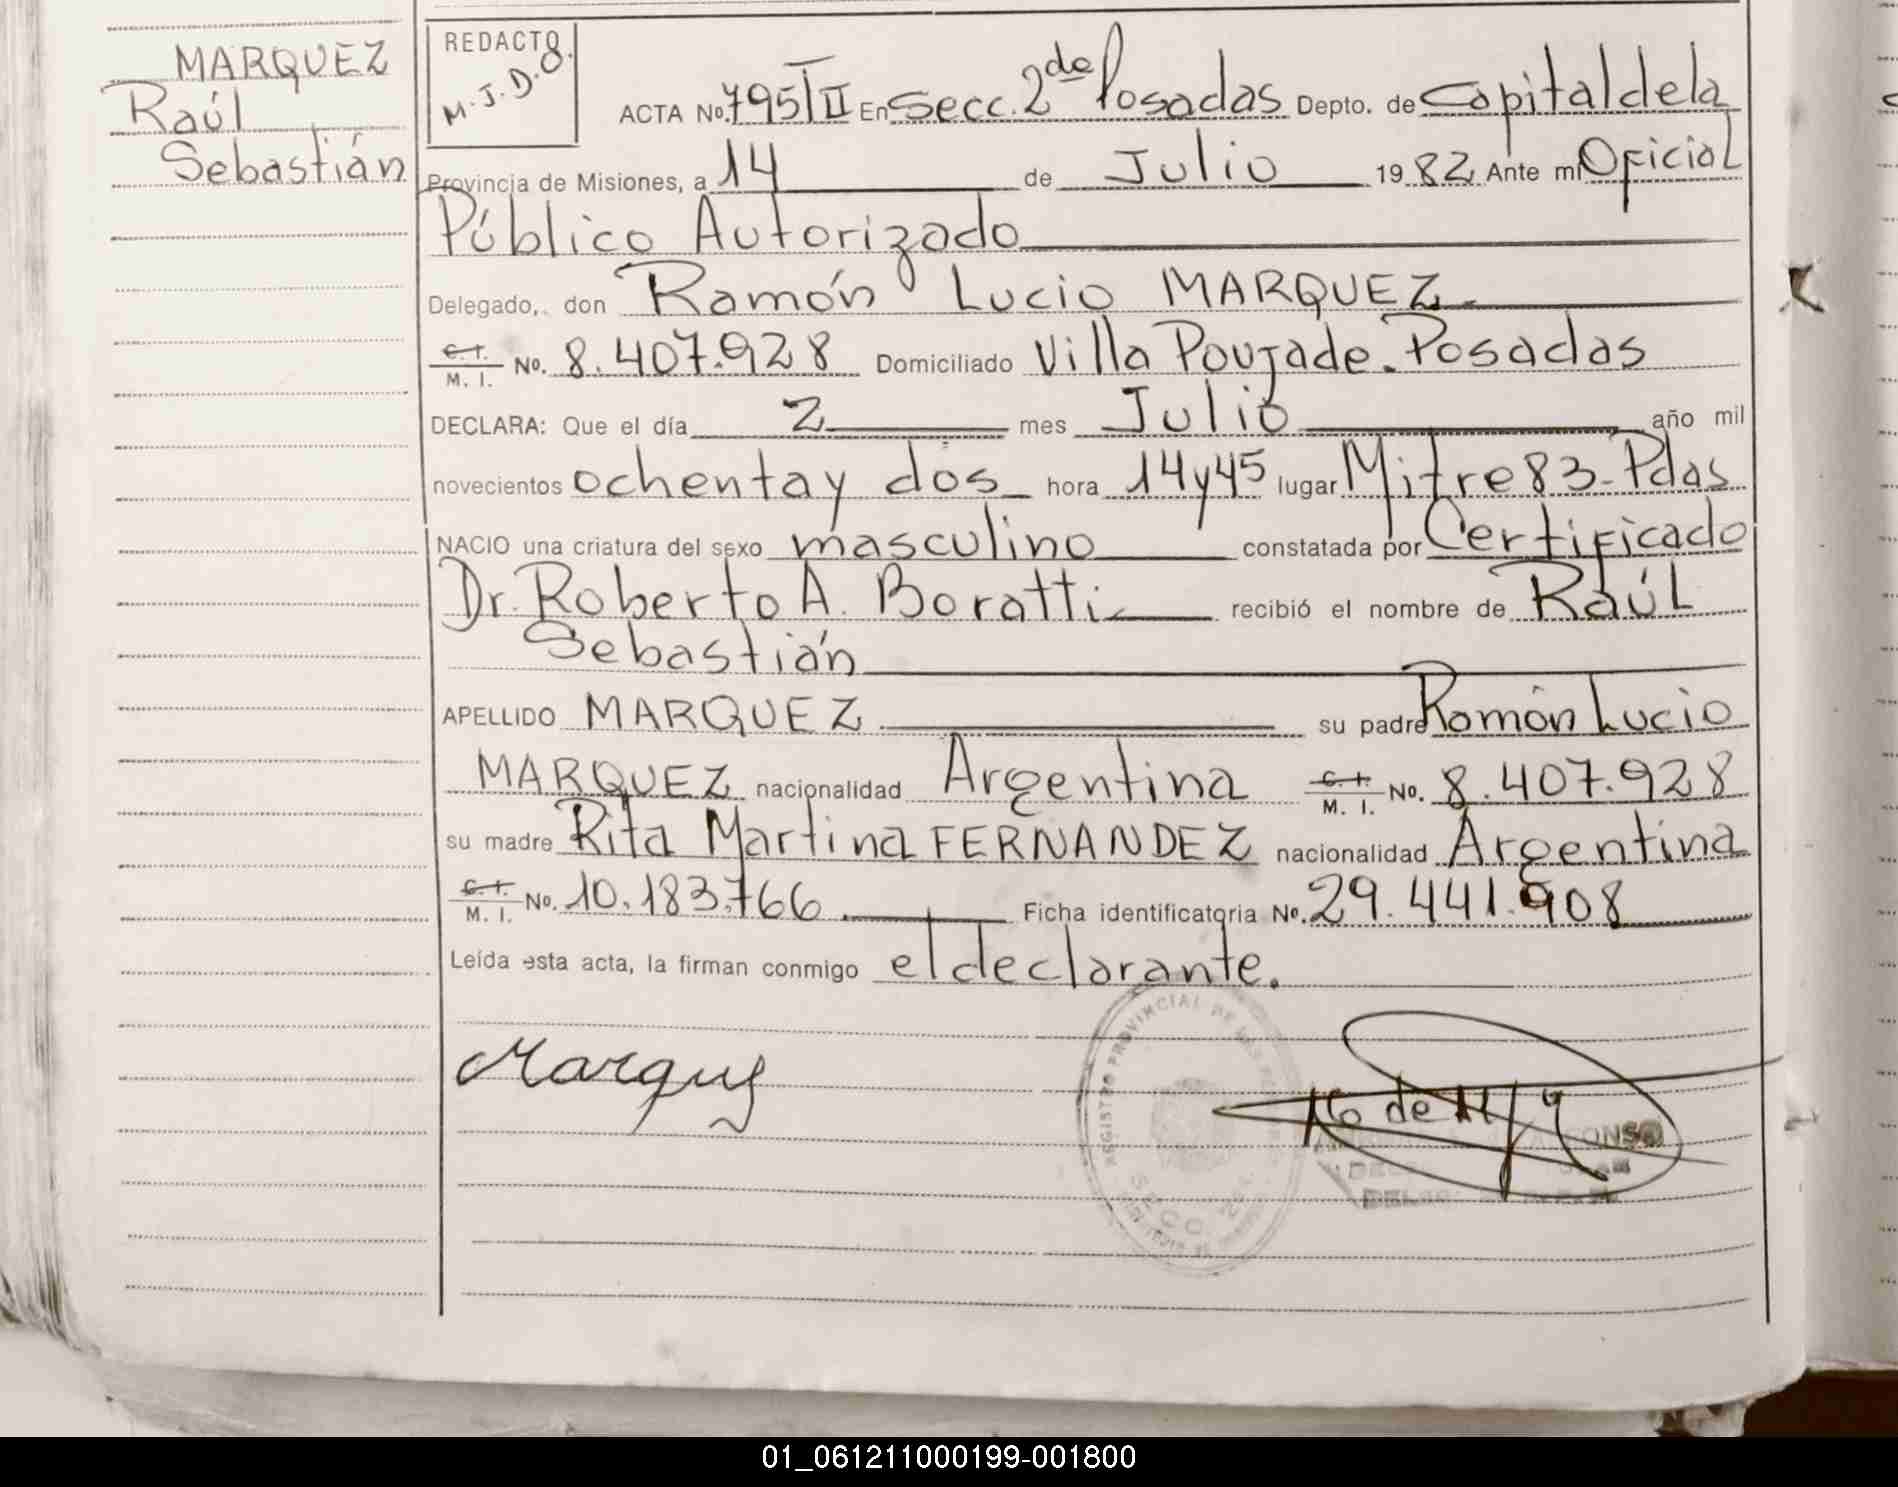 MARQUEZ
Raúl
Sebastián
REDACTO
M.J.D.O.
ACTA No. 795 TII En Secc. 2da Posadas Depto. de Capital de la
Provincia de Misiones, a 14 de Julio 1982 Ante mi Oficial
Público Autorizado
Delegado, don Ramón Lucio MARQUEZ
C.I. M. I. No. 8.407.928 Domiciliado Villa Poujade. Posadas
DECLARA: Que el día 2 mes Julio año mil
novecientos ochenta y dos hora 14 y 45 lugar Mitre 83 - Pdas
NACIO una criatura del sexo masculino constatada por Certificado
Dr. Roberto A. Boratti recibió el nombre de Raúl
Sebastián
APELLIDO MARQUEZ su padre Ramón Lucio
MARQUEZ nacionalidad Argentina C.I. M. I. No. 8.407.928
su madre Rita Martina FERNANDEZ nacionalidad Argentina
C.I. M. I. No. 10.183.766 Ficha identificatoria No. 29.441.908
Leída esta acta, la firman conmigo el declarante.
REGISTRO PROVINCIAL DE LAS
SECC
01_061211000199-001800